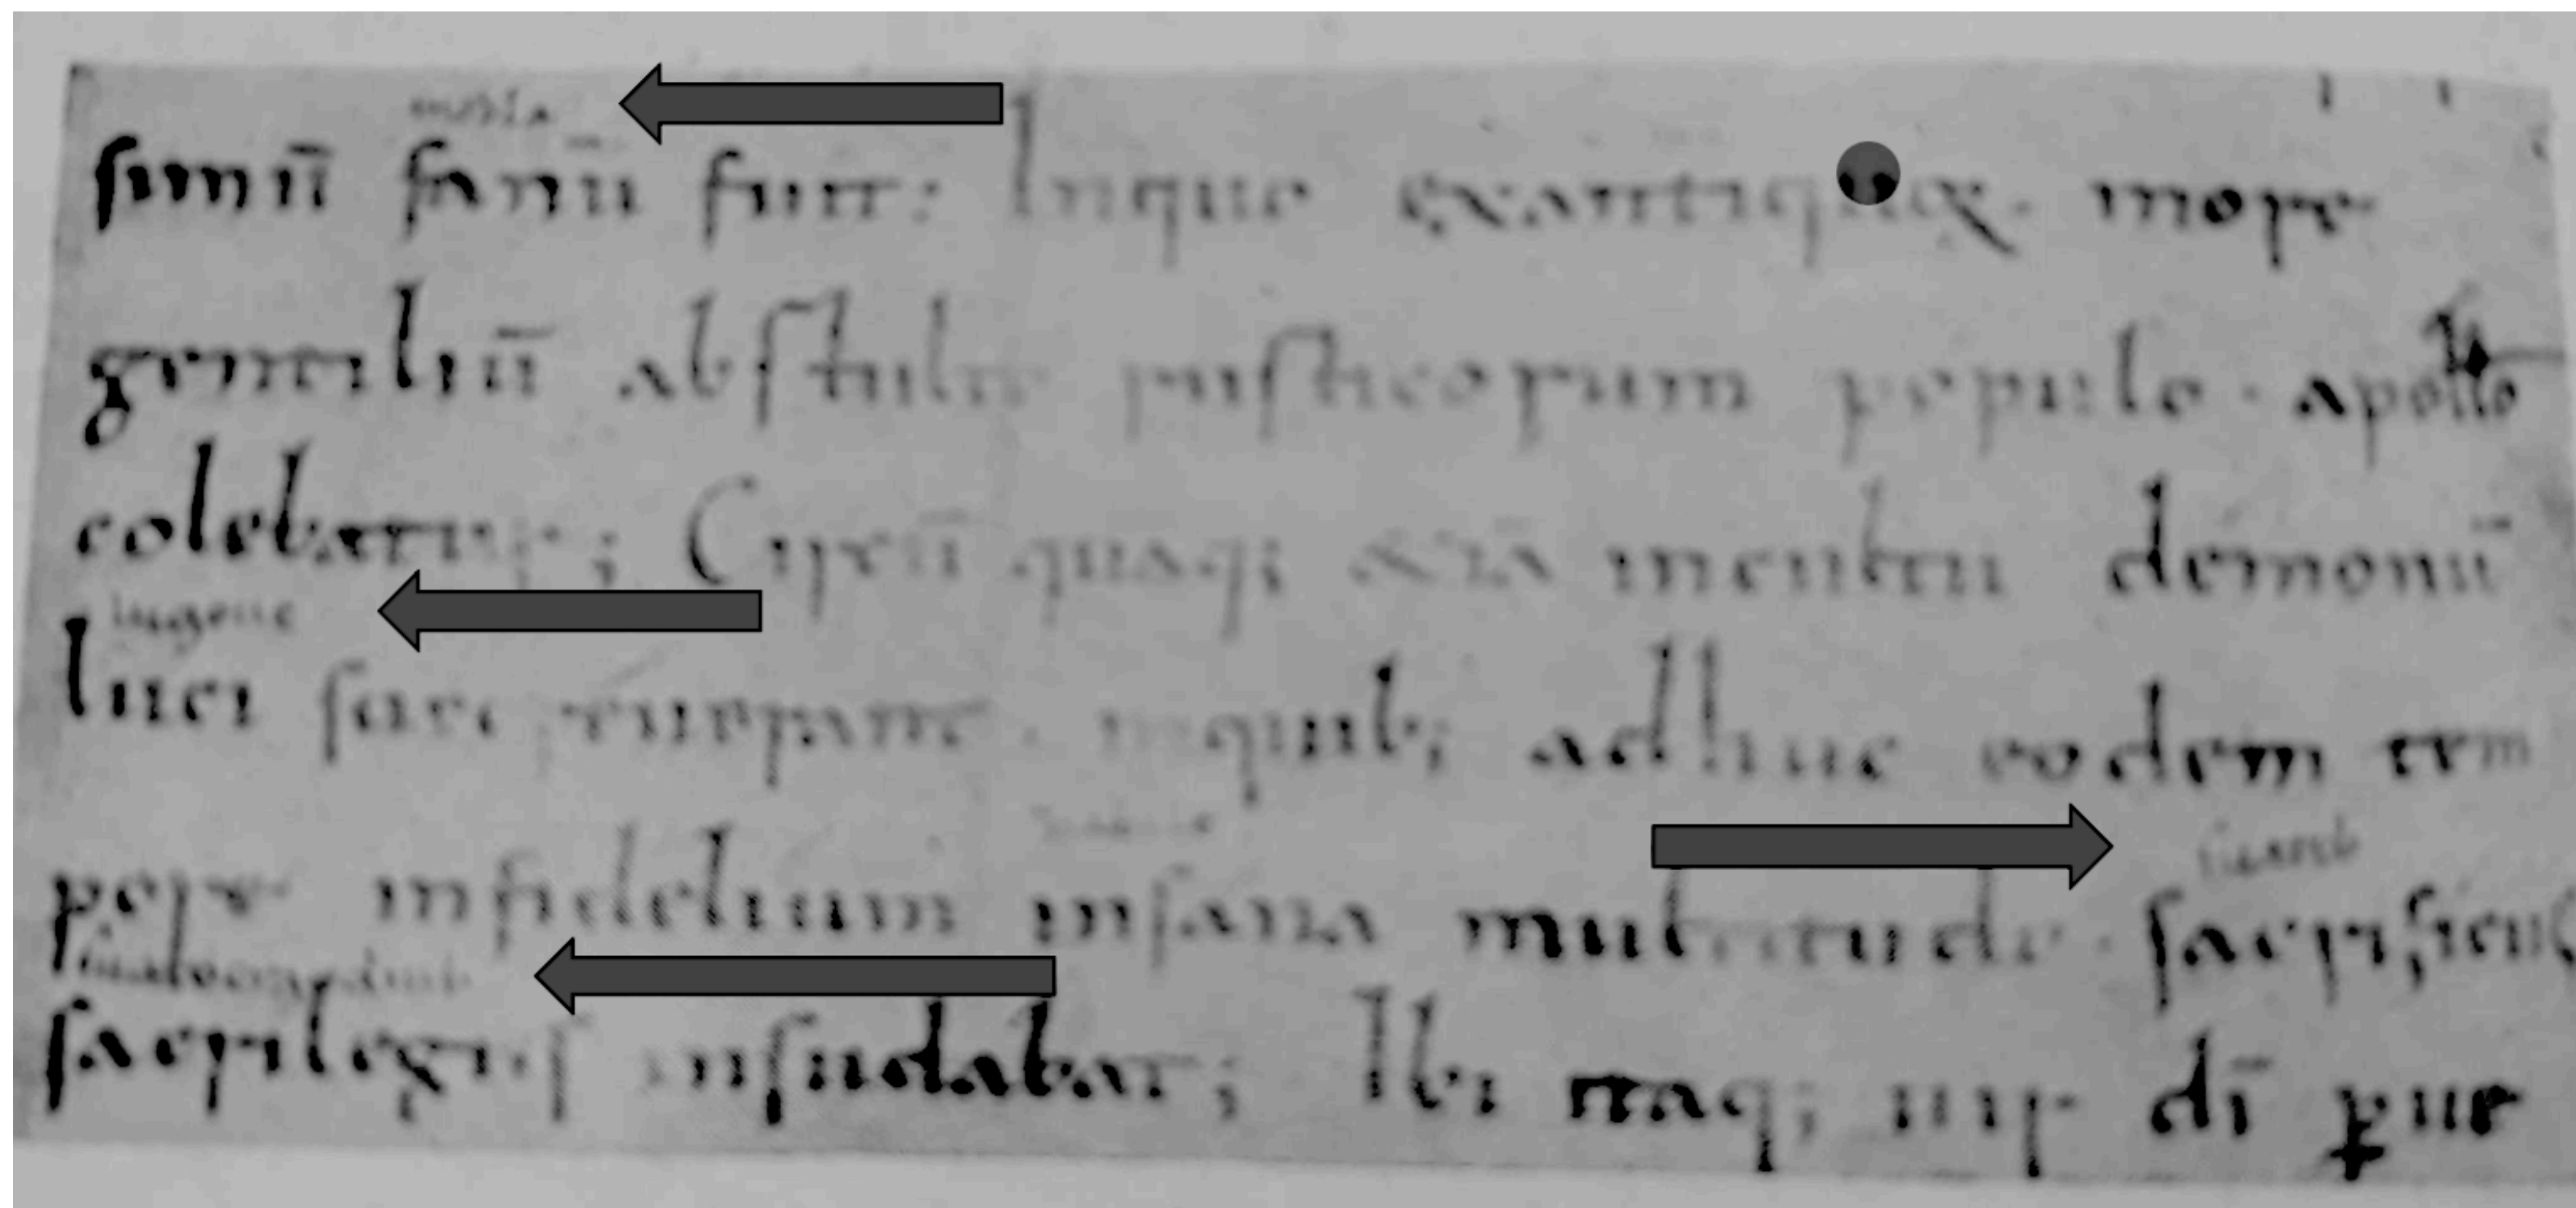 simū fanū fuit: Inquo exantiquo more
gentiliū abstulto rusticorum populo · apollo
colebatur; Circū quaq; &iā incultu demonū
luci succreuerant · inquib; adhuc eodem tem
pore infidelium insana multitudo · sacrificiis
sacrilegis insudabat; Ibi itaq; uir dī ꝑue